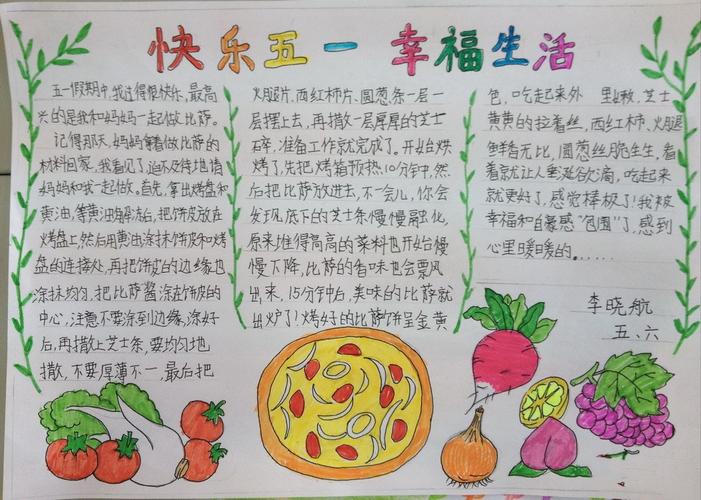 快乐五一 幸福生活
五一假期中,我过得很快乐,最高
兴的是我和妈妈一起做比萨。
记得那天,妈妈拿着做比萨的
材料回家,我看见了,迫不及待地请
妈妈和我一起做。首先,拿出烤盘和
黄油,等黄油解冻后,把饼皮放在
烤盘上,然后用黄油涂抹饼皮和烤
盘的连接处,再把饼皮的边缘也
涂抹均匀,把比萨酱涂在饼皮的
中心,注意不要涂到边缘,涂好
后,再撒上芝士条,要均匀地
撒,不要厚薄不一,最后把
火腿片,西红柿片,圆葱条一层一
层摆上去,再撒一层厚厚的芝士
碎,准备工作就完成了。开始烘
烤了,先把烤箱预热10分钟,然
后把比萨放进去,不一会儿,你会
发现,底下的芝士条慢慢融化,
原来堆得高高的菜料也开始慢
慢下降,比萨的香味也会飘
出来,15分钟后,美味的比萨就
出炉了!烤好的比萨饼呈金黄
色,吃起来外 里嫩,芝士
黄黄的拉着丝,西红柿、火腿
鲜香无比,圆葱丝脆生生,看
着就让人垂涎欲滴,吃起来
就更好了,感觉棒极了!我被
幸福和自豪感“包围”了,感到
心里暖暖的......
李晓航
五、六